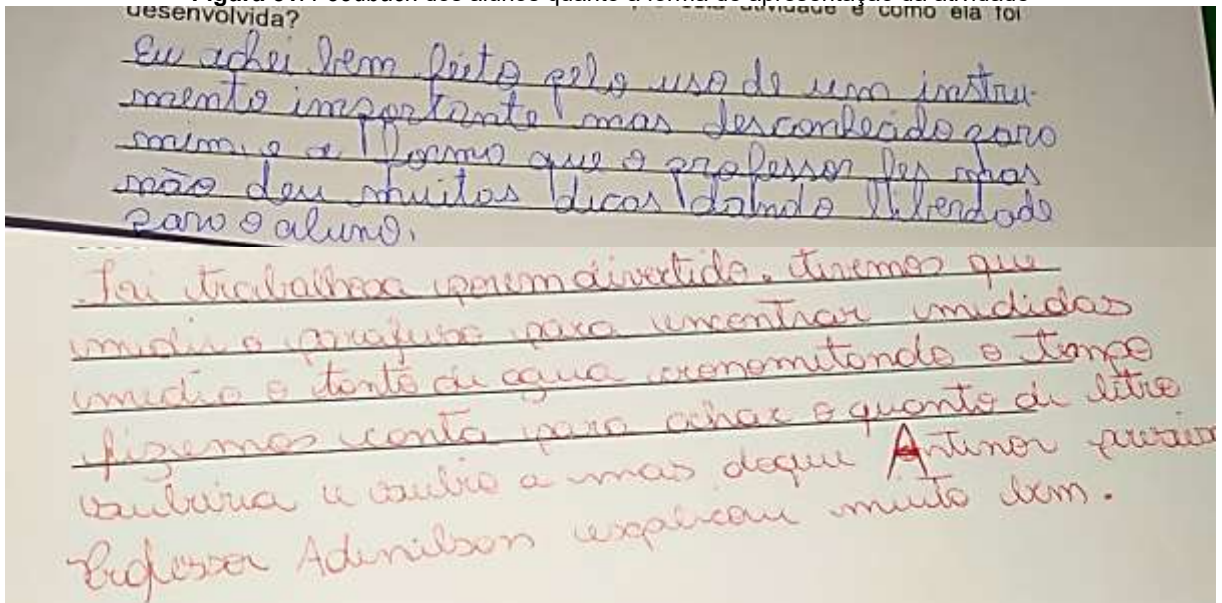 desenvolvida?
Eu achei bem feito pelo uso de um instru-
mento importante mas desconhecido para
mim, e a forma que o professor fes mas
não deu muitas dicas dando liberdade
para o aluno.
Foi trabalhoa porem divertido. tivemos que
medir o parafuso para encontrar medidas
medio o tanto de agua cronomitando o tempo
fizemos conta para achar o quanto de litro
cauberia e caubio a mas doque Antinor
Professor Adenilson explicou muito bem.